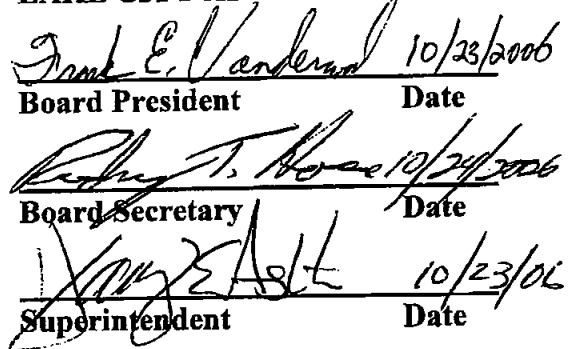 Frank E. Vanderwal 10/23/2006
Board President Date
T. 10/24/2006
Board Secretary Date
E 10/23/06
Superintendent Date